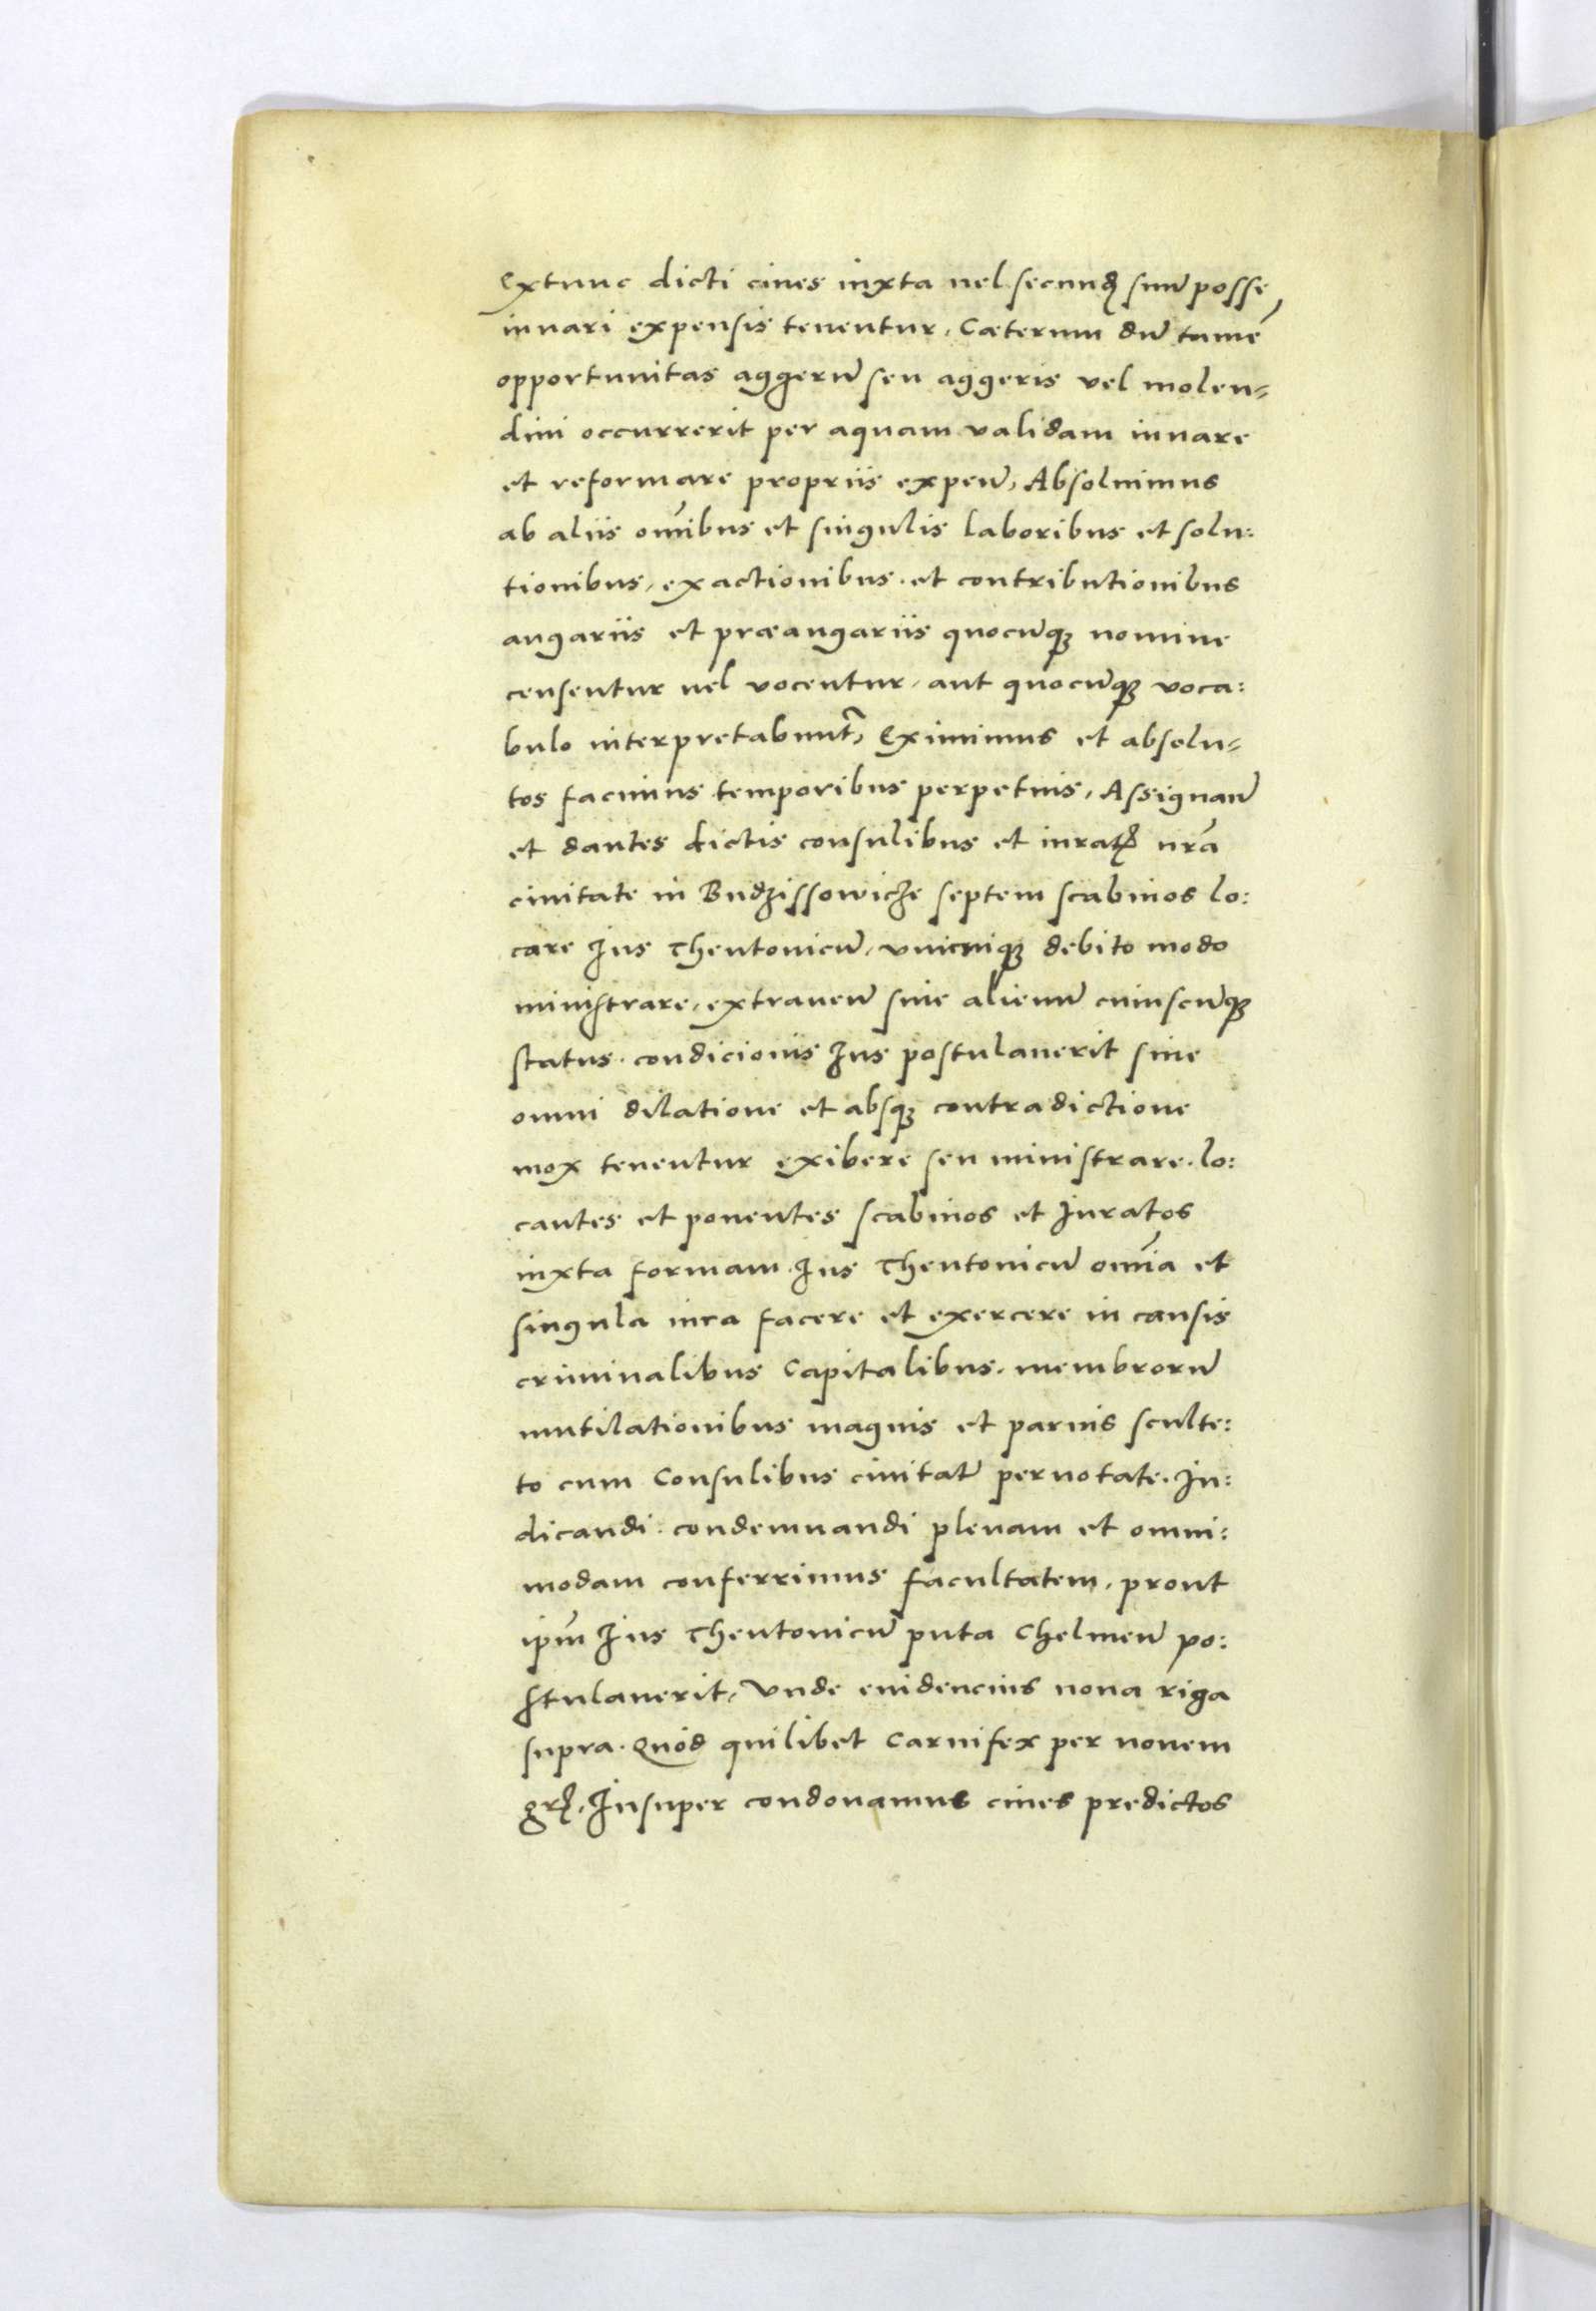 Extunc dicti ciues iuxta uel secundꝫ suū posse
iuuari expensis tenentur, Cæterum dū tamē
opportunitas aggerū seu aggeris vel molen=
dini occurrerit per aquam validam iuuare
et reformare propriis expeñ, Absoluimus
ab aliis om̄ibus et singulis laboribus et solu:
tionibus, exactionibus. et contributionibus
angariis et præangariis quocūqꝫ nomine
censentur uel vocentur, aut quocūqꝫ voca:
bulo interpretabunt̃, Eximimus et absolu=
tos facimus temporibus perpetuis, Assignañ
et dantes dictis consulibus et iuratꝭ nrā
ciuitate in Budzissowicze septem scabinos lo:
care Ius Theutonicū, vnicuiqꝫ debito modo
ministrare, extraneū siue alienū cuiuscūqꝫ
status. condicionis Ius postulauerit sine
omni dilatione et absqꝫ contradictione
mox tenentur exibere seu ministrare. lo:
cantes et ponentes scabinos et Iuratos
iuxta formam. Ius Theutonicū om̄ia et
singula iura facere et exercere in causis
criminalibus Capitalibus. membrorū
mutilationibus magnis et paruis sculte:
to cum Consulibus ciuitat̃ pernotate. Iu:
dicandi. condemnandi plenam et omni:
modam conferrimus facultatem, prout
ipm̄ Ius Theutonicū puta Chelmeñ po:
stulauerit, Vnde euidencius nona riga
supra. Quod quilibet Carnifex per nouem
grꝭ. Insuper condonamus ciues predictos